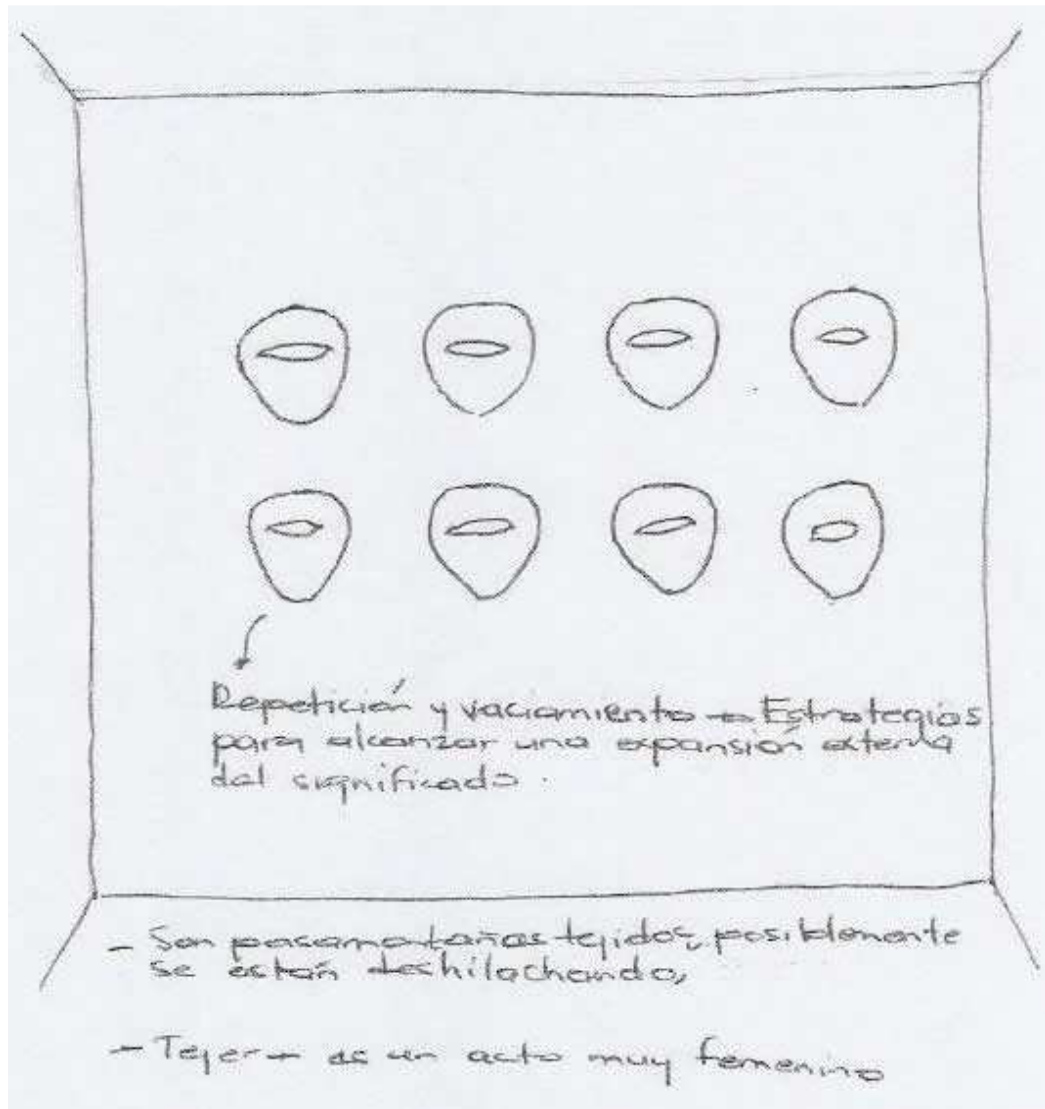 Repetición y vaciamiento → Estrategias
para alcanzar una expansión externa
del significado.
- Son pasamontañas tejidos, posiblemente
se están deshilachando,
- Tejer → es un acto muy femenino